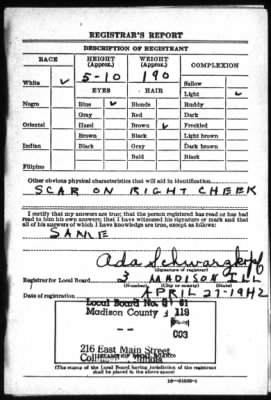 REGISTRAR'S REPORT
DESCRIPTION OF REGISTRANT
RACE HEIGHT (Approx.) WEIGHT (Approx.) COMPLEXION
5-10 190
White ✓ EYES HAIR Sallow
Light ✓
Negro Blue ✓ Blonde Ruddy
Gray Red Dark
Oriental Hazel Brown ✓ Freckled
Brown Black Light brown
Indian Black Gray Dark brown
Bald Black
Filipino
Other obvious physical characteristics that will aid in identification
SCAR ON RIGHT CHEEK
I certify that my answers are true; that the person registered has read or has had
read to him his own answers; that I have witnessed his signature or mark and that
all of his answers of which I have knowledge are true, except as follows:
SAME
Ada Schwarzkopf
(Signature of registrar)
Registrar for Local Board 3 MADISON ILL
(Number) (City or county) (State)
Date of registration APRIL 27-1942
Local Board No. 3 61
Madison County 119
003
216 East Main Street
(STAMP OF LOCAL BOARD)
(The stamp of the Local Board having jurisdiction of the registrant
shall be placed in the above space)